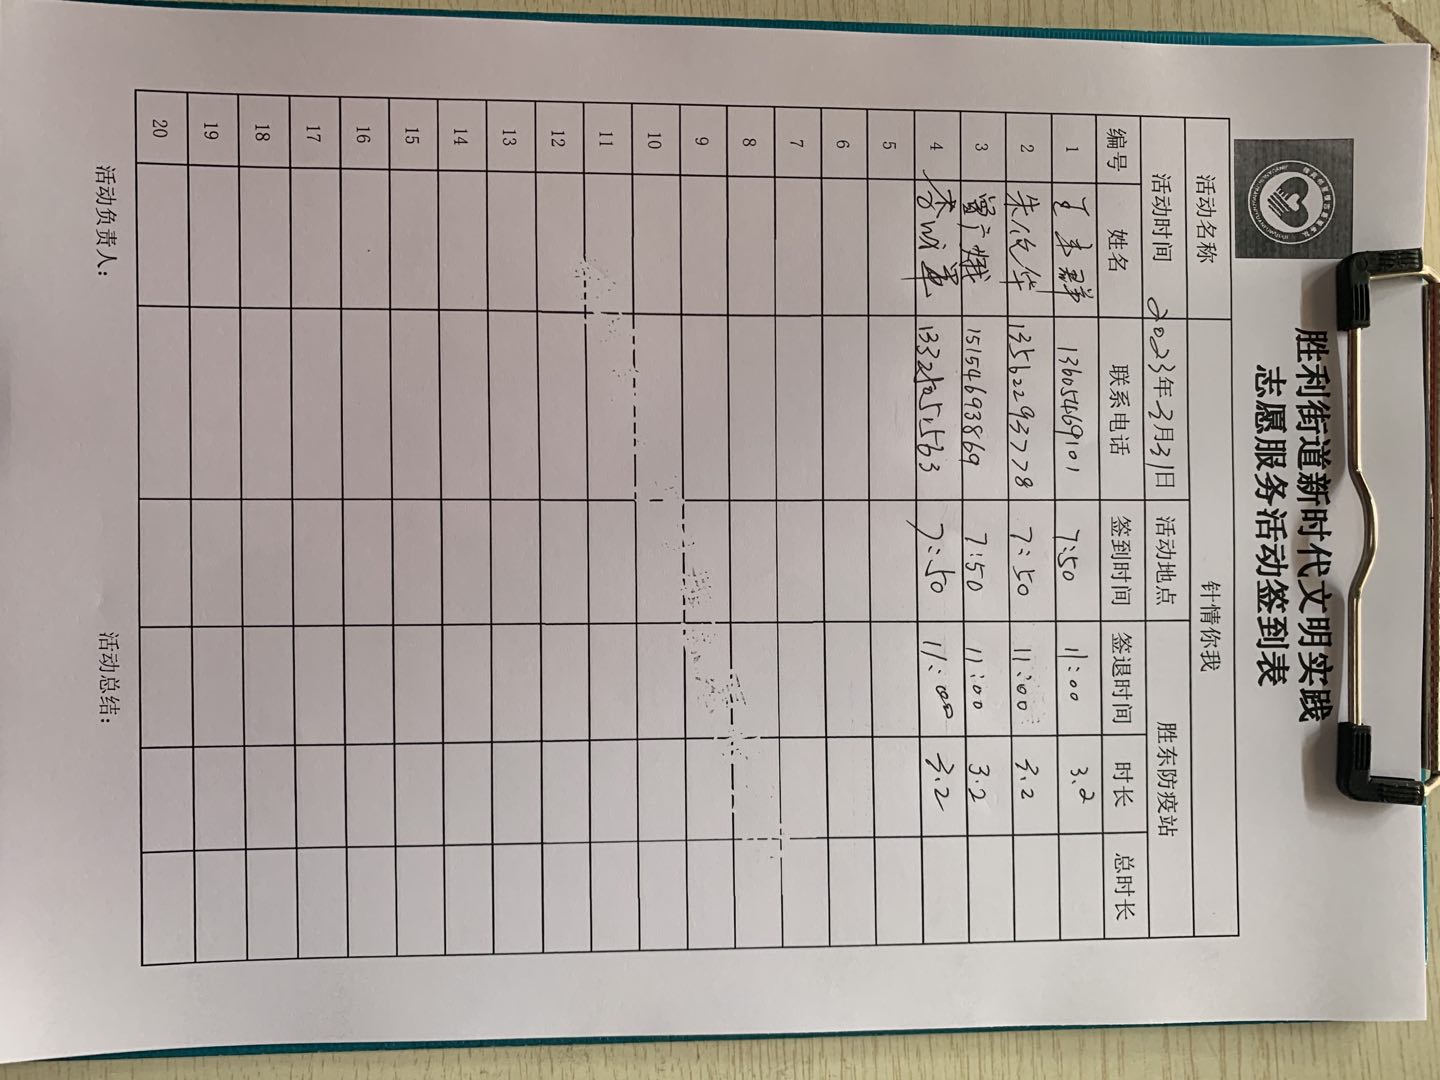 胜利街道新时代文明实践
志愿服务活动签到表
活动名称 针情你我
活动时间 2023年3月31日 活动地点 胜东防疫站
编号 姓名 联系电话 签到时间 签退时间 时长 总时长
1 王秀群 13605469101 7:50 11:00 3.2
2 朱俊华 13562293778 7:50 11:00 3.2
3 15154693869 7:50 11:00 3.2
4 7:50 11:00 3.2
5
6
7
8
9
10
11
12
13
14
15
16
17
18
19
20
活动负责人： 活动总结：